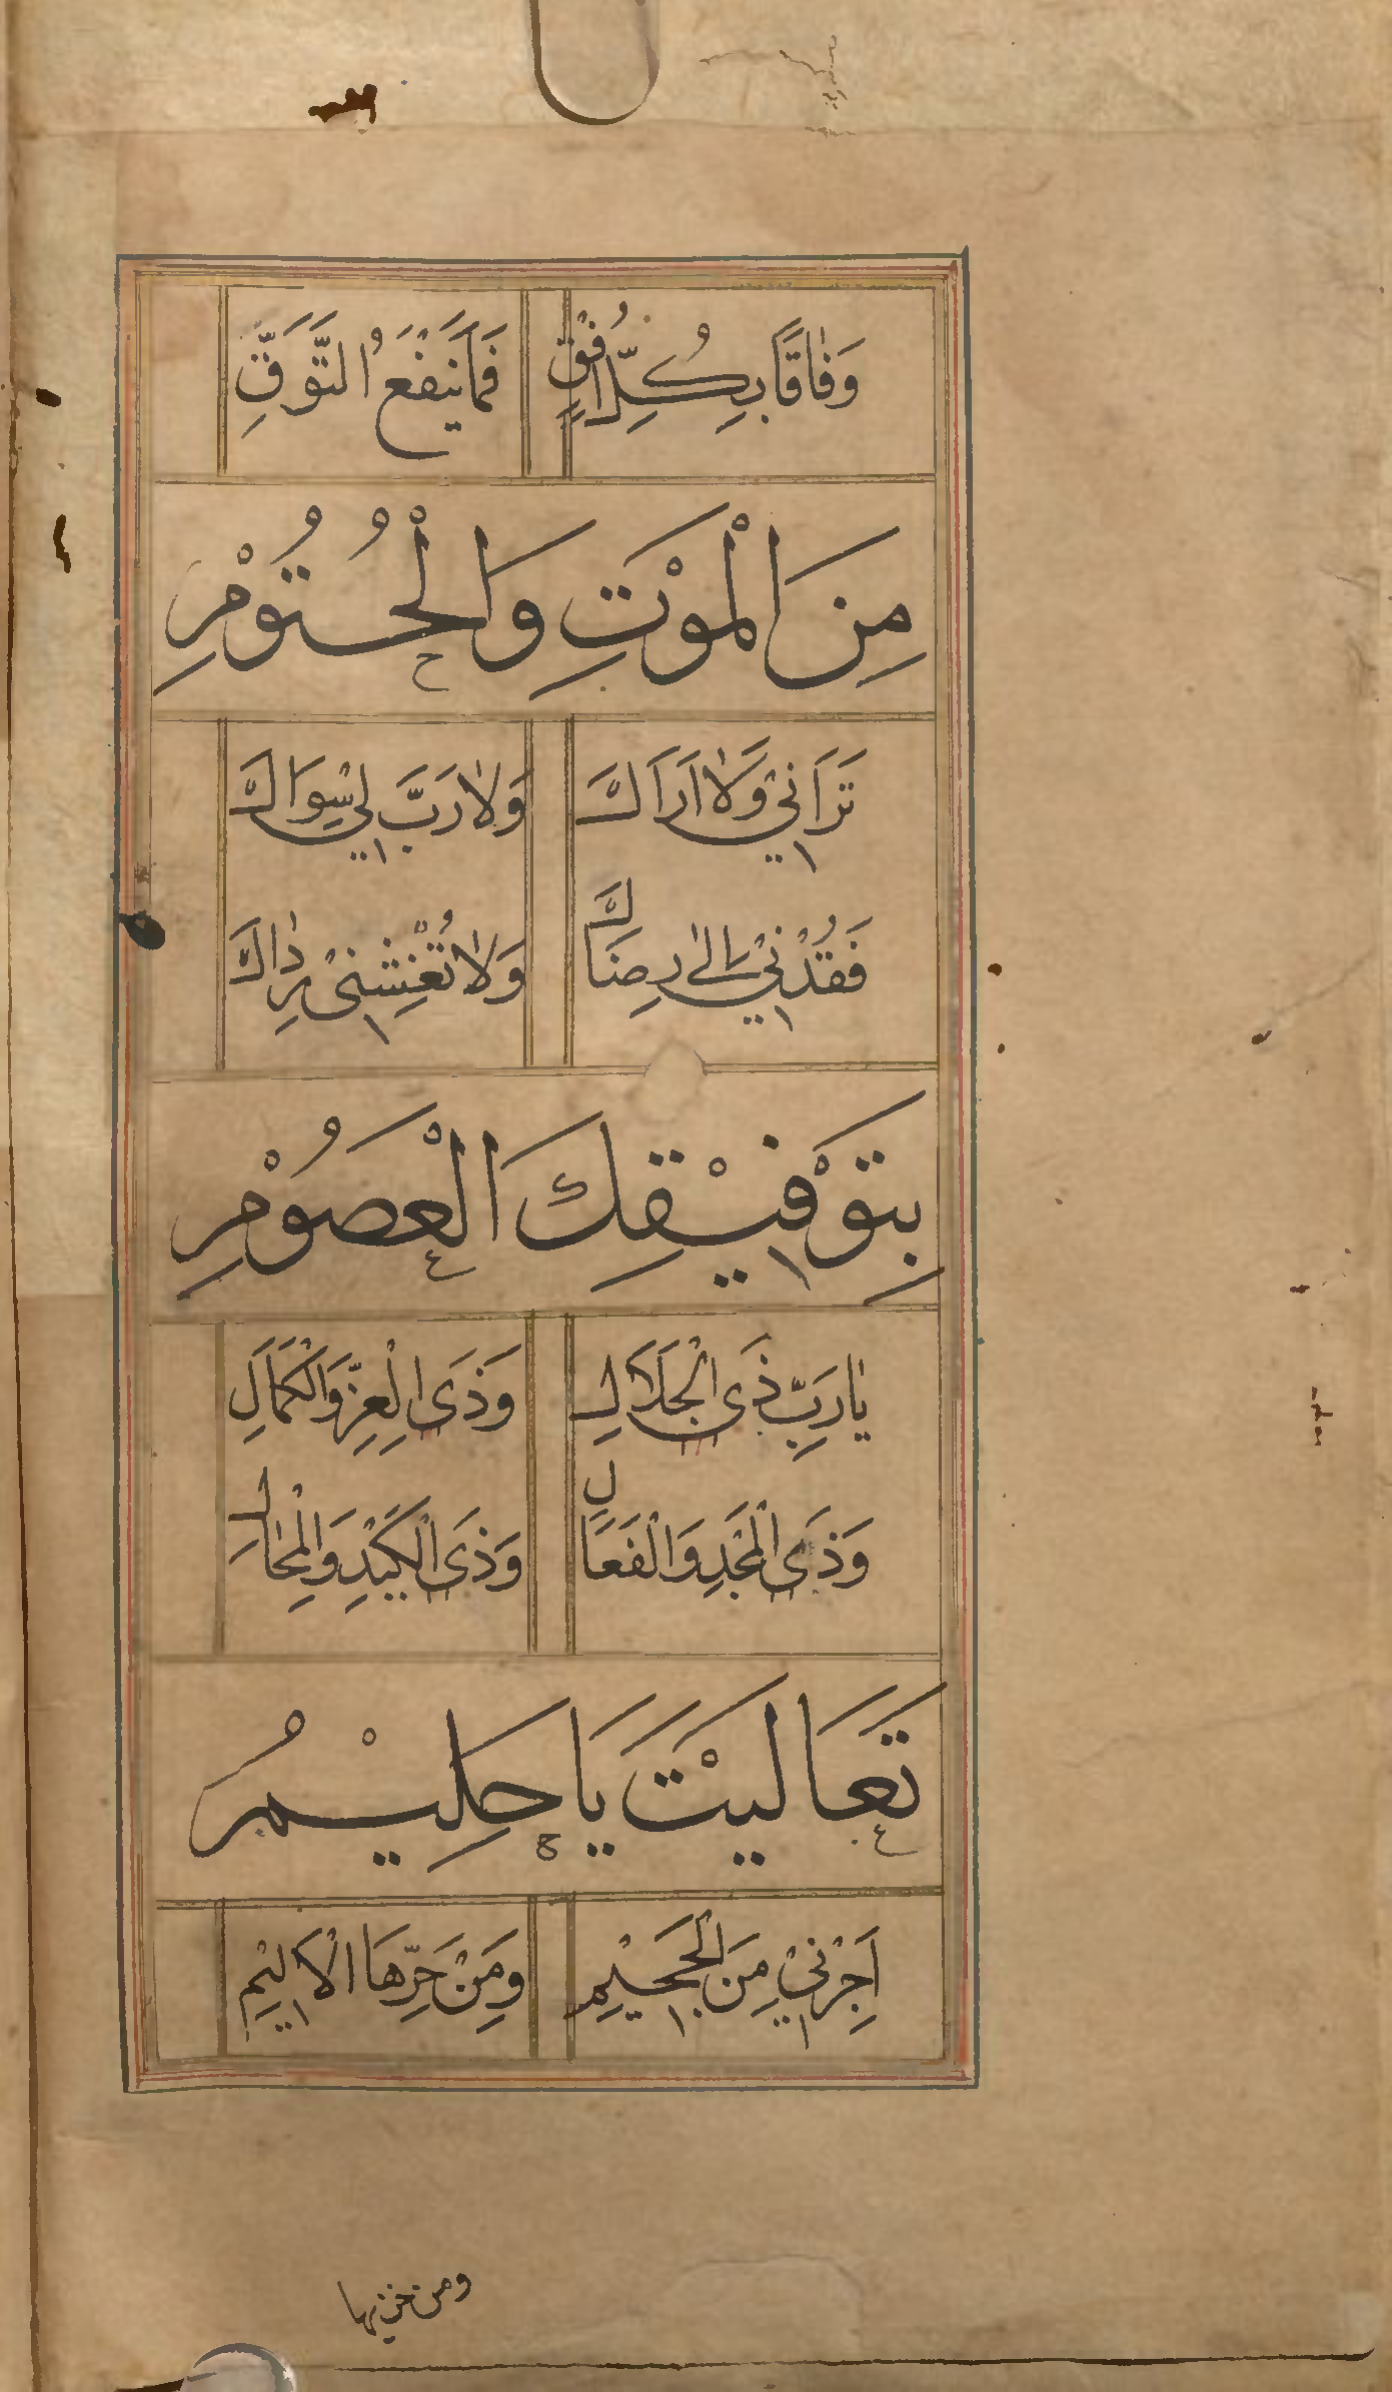 وَفَاقًا بِكُلِّ اُفُقٍ فَمَا يَنْفَعُ التَّوَقِّ
مِنَ الْمَوْتِ وَالْحُتُوْمِ
تَرَانِيْ وَلَا اَرَاكَ وَلَا رَبَّ لِيْ سِوَاكَ
فَقُدْنِيْ اِلٰى رِضَاكَ وَلَا تُغْشِنِيْ رِدَاكَ
بِتَوْفِيْقِكَ الْعَصُوْمِ
يَا رَبِّ ذَى الْجَلَالِ وَذَى الْعِزِّ وَالْكَمَالِ
وَذَى الْمَجْدِ وَالْفَعَالِ وَذَى الْكَيْدِ وَالْمِحَالِ
تَعَالَيْتَ يَا حَلِيْمُ
اَجِرْنِيْ مِنَ الْجَحِيْمِ وَمِنْ حَرِّهَا الْاَلِيْمِ
ومن خزيها